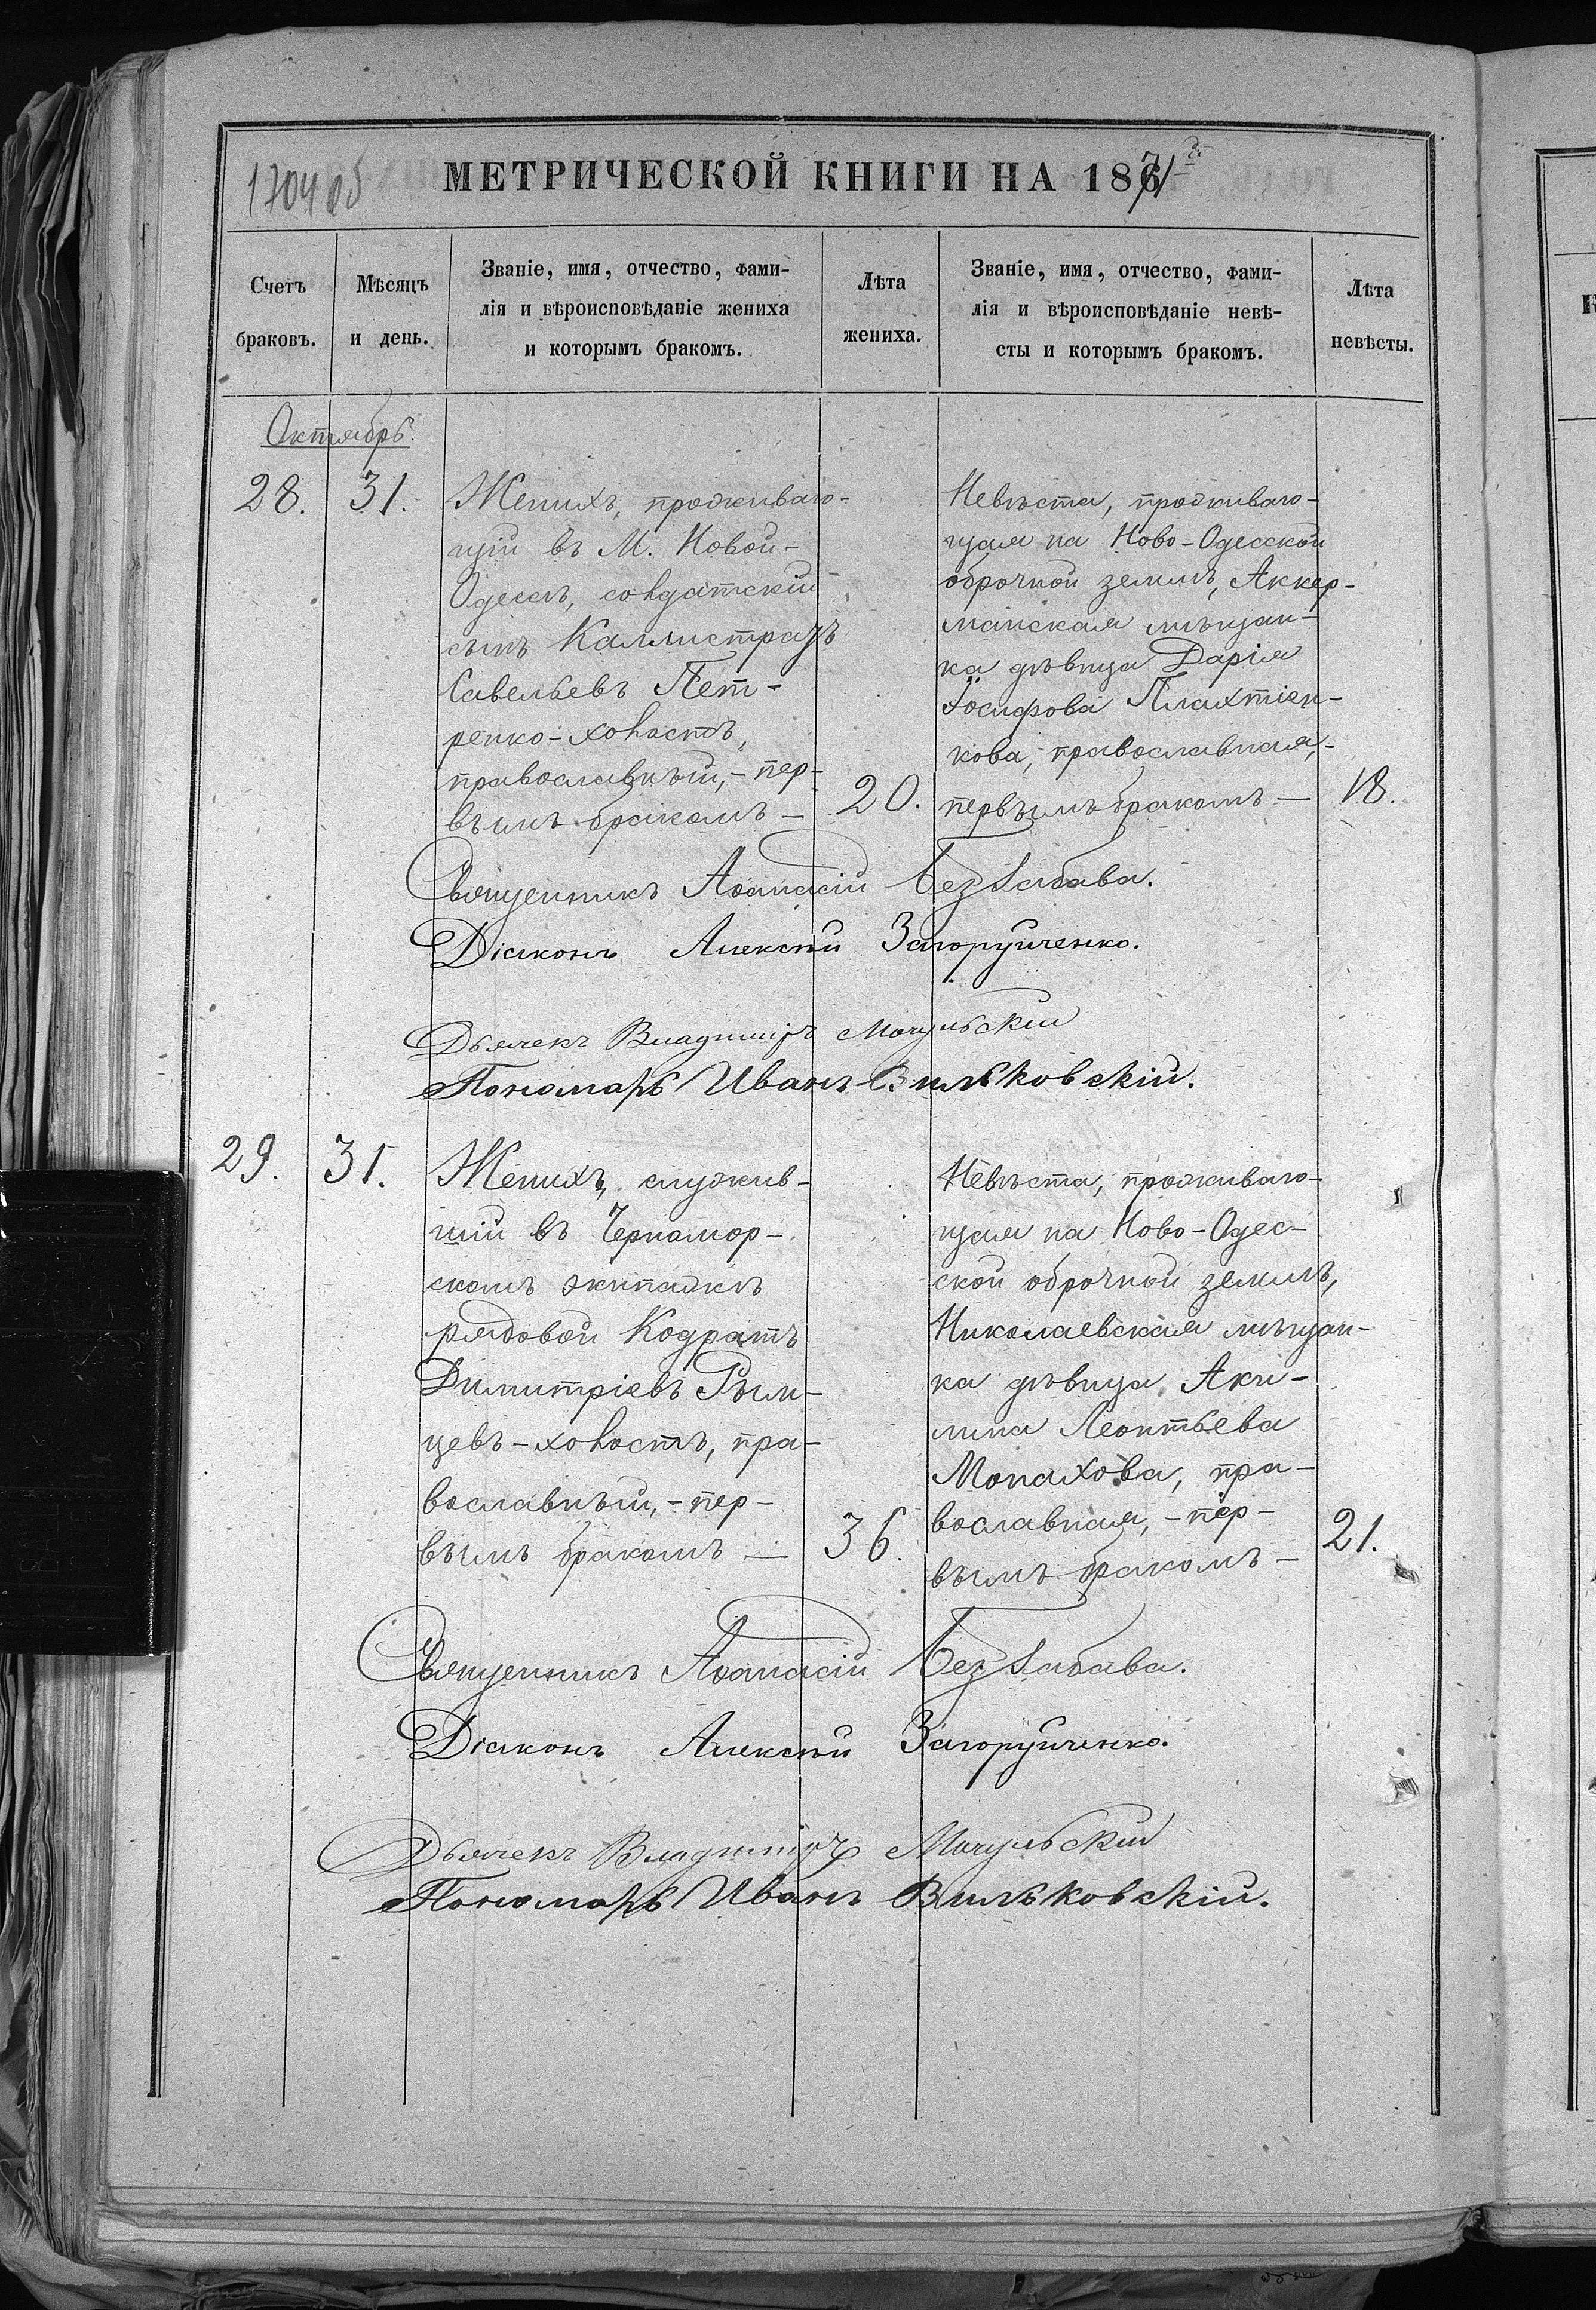 1704 об
МЕТРИЧЕСКОЙ КНИГИ НА 1871
Счетъ браковъ.
Мѣсяцъ и день.
Званіе, имя, отчество, фами-
лія и вѣроисповѣданіе жениха
и которымъ бракомъ.
Лѣта жениха.
Званіе, имя, отчество, фами-
лія и вѣроисповѣданіе невѣ-
сты и которымъ бракомъ.
Лѣта невѣсты.
Октябрь.
28. 31.
Женихъ, проживаю-
щій въ М. Новой-
Одессѣ, солдатскій
сынъ Каллистратъ
Савельевъ Пет-
ренко-холостъ,
православный,-пер-
вымъ бракомъ —
20.
Невѣста, проживаю-
щая на Ново-Одесской
оброчной землѣ, Аккер-
манская мѣщан-
ка дѣвица Дарія
Іосифова Плахтіен-
кова, православная,-
первымъ бракомъ —
18.
Священникъ Аѳанасій Беззабава.
Діаконъ Алексѣй Загоруйченко.
Дьячекъ Владиміръ Мочульскій
Пономарь Иванъ Вильковскій.
29. 31.
Женихъ, служив-
шій въ Черномор-
скомъ экипажѣ
рядовой Кодратъ
Димитріевъ Рым-
цевъ-холостъ, пра-
вославный,-пер-
вымъ бракомъ —
36.
Невѣста, проживаю-
щая на Ново-Одес-
ской оброчной землѣ,
Николаевская мѣщан-
ка дѣвица Аки-
лина Леонтьева
Монахова, пра-
вославная,-пер-
вымъ бракомъ —
21.
Священникъ Аѳанасій Беззабава.
Діаконъ Алексѣй Загоруйченко.
Дьячекъ Владиміръ Мочульскій
Пономарь Иванъ Вильковскій.